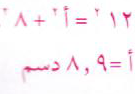 ١٢ ٢ = أ ٢ + ٨ ٢
أ = ٨,٩ دسم